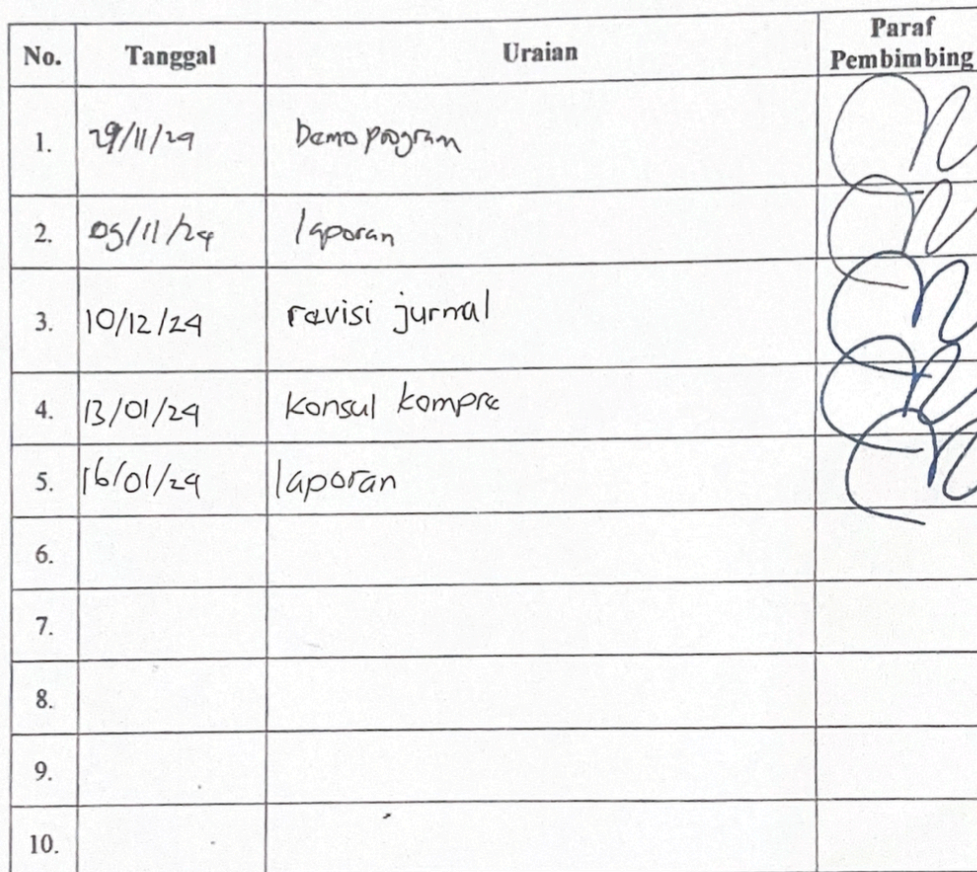 No. Tanggal Uraian Paraf Pembimbing
1. 29/11/24 Demo program
2. 05/11/24 laporan
3. 10/12/24 revisi jurnal
4. 13/01/24 Konsul kompre
5. 16/01/24 laporan
6.
7.
8.
9.
10.